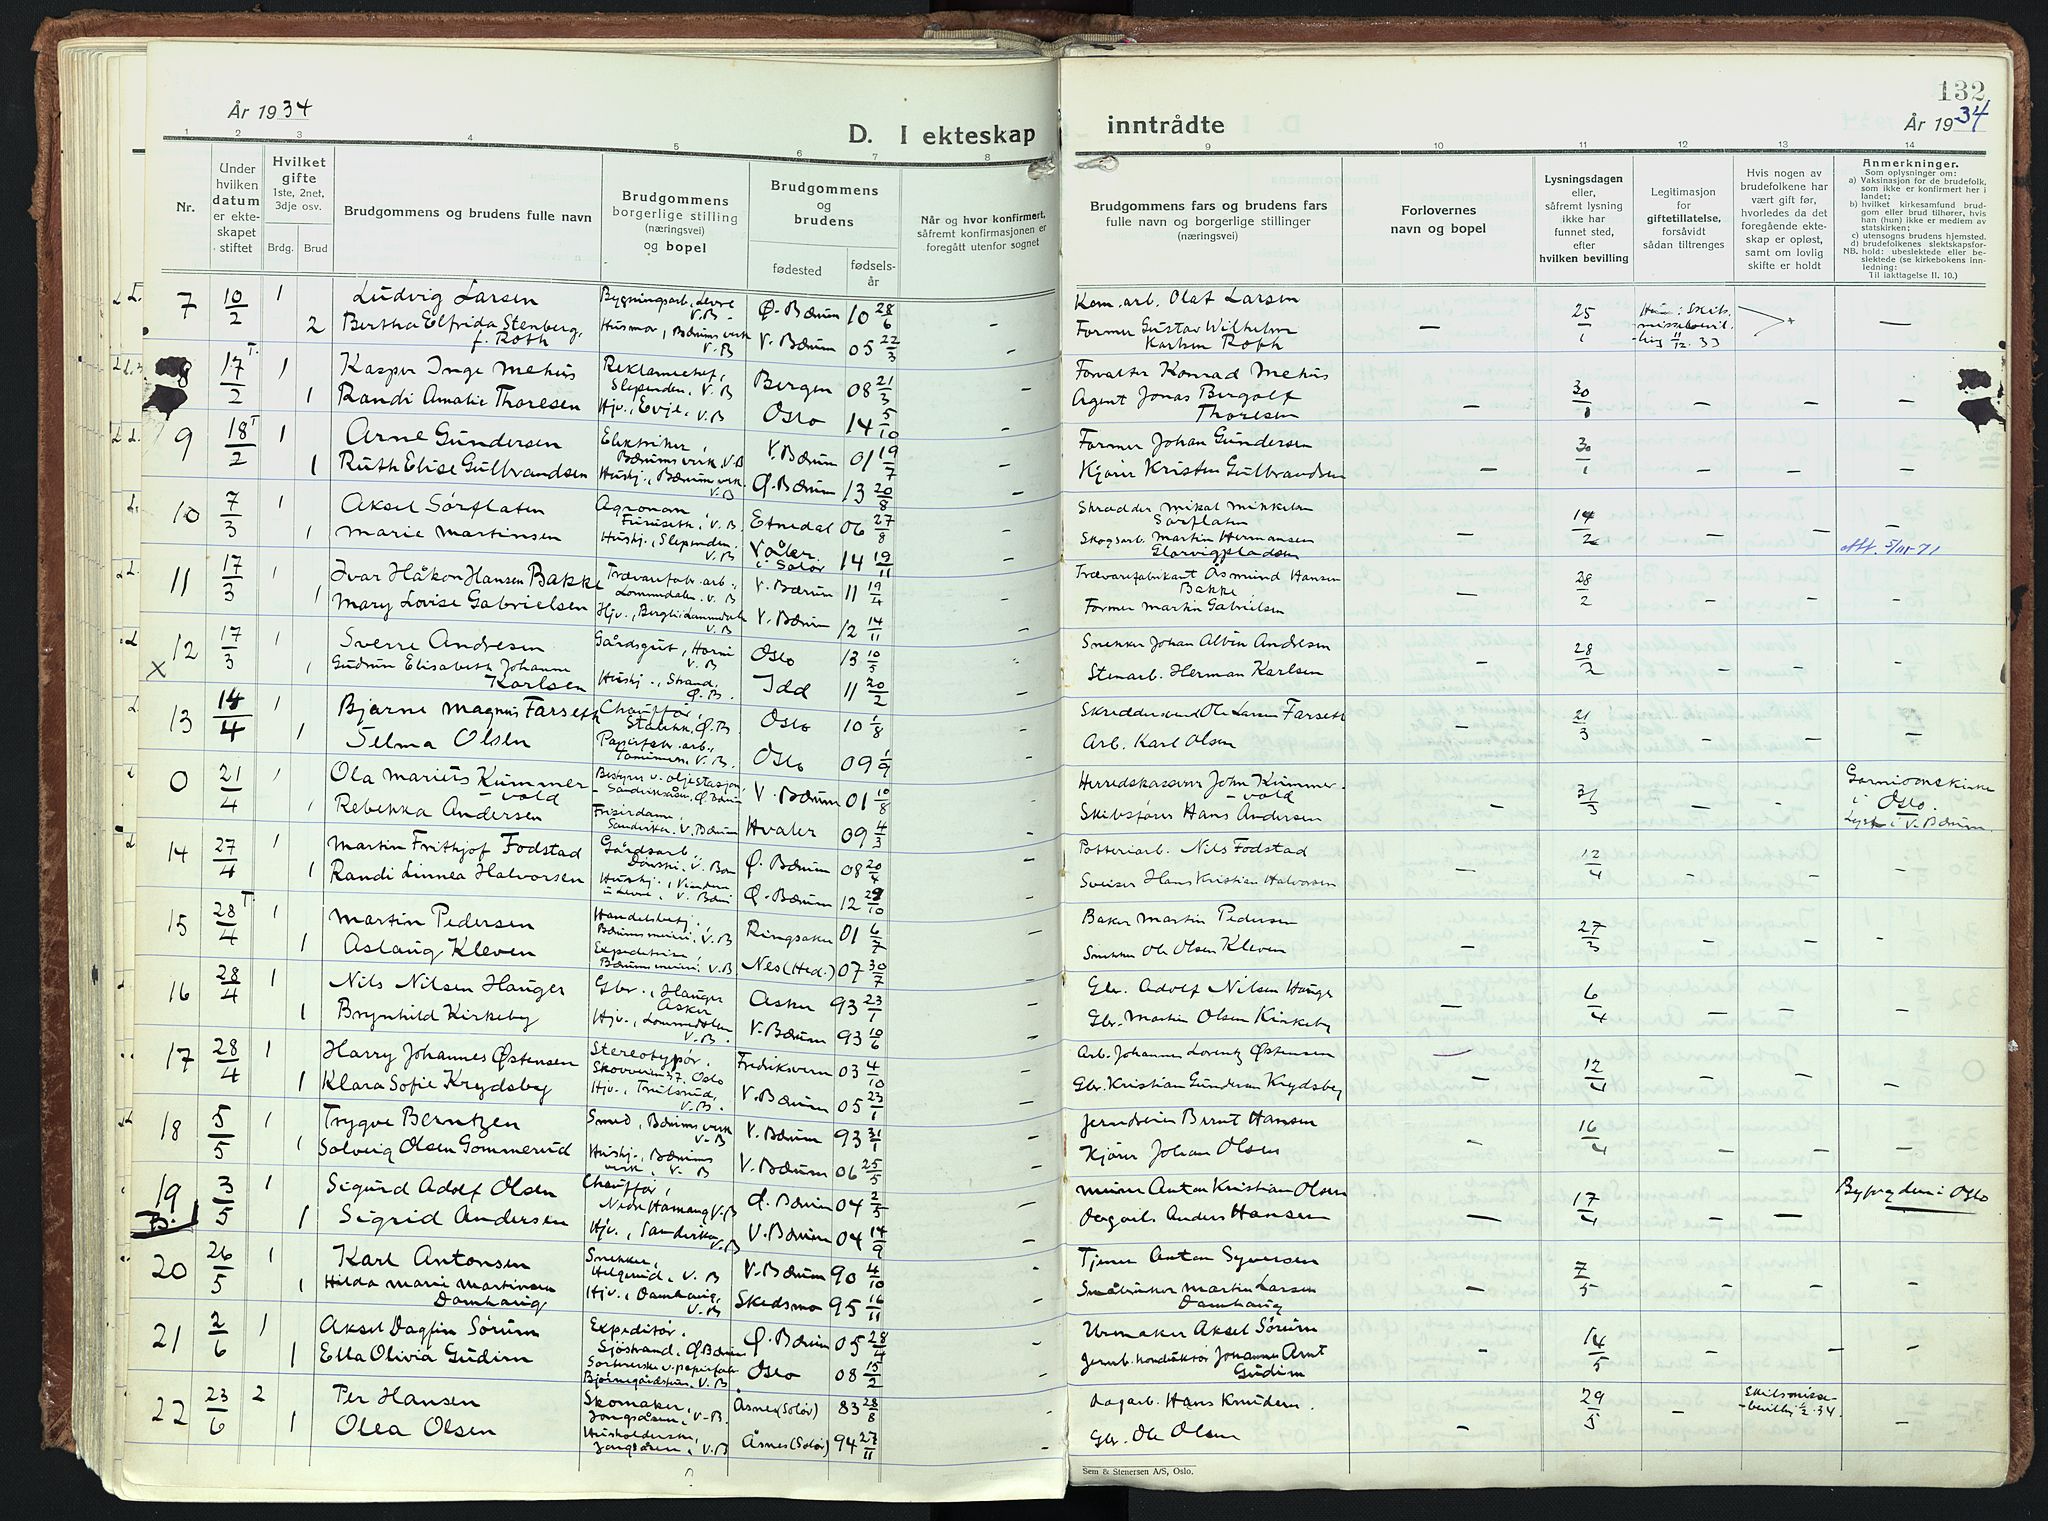 År 1934
D. I ekteskap
1 2 3 4 5 6 7 8
Nr.
Under hvilken datum er ekteskapet stiftet
Hvilket gifte 1ste, 2net, 3dje osv.
Brdg. Brud
Brudgommens og brudens fulle navn
Brudgommens borgerlige stilling (næringsvei) og bopel
Brudgommens og brudens
fødested fødselsår
Når og hvor konfirmert, såfremt konfirmasjonen er foregått utenfor sognet
7 10/2 1 Ludvig Larsen Bygningsarb., Levre V.B. Ø. Bærum 10 28/6
2 Bertha Elfrida Stenberg, f. Roth Husmor, Bærums verk V.B V. Bærum 05 22/3
8 17/2 T. 1 Kasper Inge Mehus Reklamechef, Slependen, V.B Bergen 08 21/3
1 Randi Amalie Thoresen Hjv., Evje, V.B Oslo 14 5/10
9 18/2 T 1 Arne Gundersen Elektriker, Bærums verk, V.B V. Bærum 01 19/7
1 Ruth Elise Gulbrandsen Hushj., Bærums verk. V.B Ø. Bærum 13 20/8
10 7/3 1 Aksel Sørflaten Agronom, V.B Etnedal 06 27/8
1 Marie Martinsen Hushj., Slependen, V.B Våler i Solør 14 19/11
11 17/3 1 Ivar Håkon Hansen Bakke Trævarefabr. arb., Lommedalen, V.B V. Bærum 11 19/4
1 Mary Lovise Gabrielsen Hjv., V.B V. Bærum 12 14/11
12 17/3 1 Sverre Andresen Gårdsgut, Horni V.B Oslo 13 10/5
X 1 Gudrun Elisabeth Johanne Karlsen Hushj., Strand, Ø.B. Idd 11 20/2
13 14/4 1 Bjarne Magnus Farseth Chauffør, Stabekk, Ø.B Oslo 10 1/8
1 Selma Olsen Papirfabr. arb., V.B. Oslo 09 1/9
0 21/4 1 Ola Marius Kummervold Bestyrer v. oljestasjon, Ø. Bærum V. Bærum 01 10/8
1 Rebekka Andersen Frisørdame, Sandvika, V. Bærum Hvaler 09 4/3
14 27/4 1 Martin Frithjof Fodstad Gårdsarb., Dønski, V. Bær Ø. Bærum 08 20/4
1 Randi Linnea Halvorsen Hushj., V. Bæru Ø. Bærum 12 /10
15 28/4 T 1 Martin Pedersen Handelsbetj., Bærums meieri, V.B Ringsaker 01 6/7
1 Aslaug Kleven Expeditrise, Bærums meieri, V.B Nes (Hed.) 07 30/7
16 28/4 1 Nils Nilsen Hauger Gbr., Hauger Asker Asker 93 23/1
1 Brynhild Kirkeby Hjv., Lommedalen V.B. V. Bærum 93 10/6
17 28/4 1 Harry Johannes Østensen Stereotypør, Skovveien 37, Oslo Fredriksvern 03 4/10
1 Klara Sofie Krydsby Hjv., Trulsrud, V.B. V. Bærum 05 23/1
18 5/5 1 Trygve Berntzen Smed, Bærums verk V.B V. Bærum 93 31/1
1 Solveig Olsen Gommerud Hushj., Bærums verk, V.B V. Bærum 06 25/5
19 3/5 1 Sigurd Adolf Olsen Chauffør, Nedre Hamang V.B Ø. Bærum 04 2/5
B. 1 Sigrid Andersen Hjv., Sandvika V.B V. Bærum 04 14/9
20 26/5 1 Karl Antonsen Snekker, Helgerud, V.B V. Bærum 90 4/10
1 Hilda Marie Martinsen Damhaug Hjv., Damhaug, V.B Skedsmo 95 16/11
21 2/6 1 Aksel Dagfin Sørum Expeditør, Sjøstrand, Ø. Bærum Ø. Bærum 05 28/4
1 Ella Olivia Gudim Sorterske v. papirfabr. Bjørnegårdssvin., V.B Oslo 08 15/2
22 23/6 2 Per Hansen Skomaker, Jongsåsen, V.B. Åsnes (Solør) 83 28/8
1 Olea Olsen Husholderske, Jongsåsen, V.B Åsnes (Solør) 94 27/11
132
inntrådte
År 1934
9 10 11 12 13 14
Brudgommens fars og brudens fars fulle navn og borgerlige stillinger (næringsvei)
Forlovernes navn og bopel
Lysningsdagen eller, såfremt lysning ikke har funnet sted, efter hvilken bevilling
Legitimasjon for giftetillatelse, forsåvidt sådan tiltrenges
Hvis nogen av brudefolkene har vært gift før, hvorledes da det foregående ekteskap er opløst, samt om lovlig skifte er holdt
Anmerkninger.
Som oplysninger om:
a) Vaksinasjon for de brudefolk, som ikke er konfirmert her i landet;
b) hvilket kirkesamfund brudgom eller brud tilhører, hvis han (hun) ikke er medlem av statskirken;
c) utensogns brudens hjemsted.
d) brudefolkenes slektskapsforhold: ubeslektede eller beslektede (se kirkebokens innledning:
NB. Til iakttagelse II. 10.)
Kom. arb. Olaf Larsen 25/1 Hun: Skilsmissebevilling 11/12 33
Former Gustav Wilhelm Karlsen Roth — —
Forvalter Konrad Mehus 30/1
Agent Jonas Bergolf Thoresen — — — —
Former Johan Gundersen 30/1
Kjører Kristen Gulbrandsen — — — —
Skrædder Mikal Mikkelsen Sørflaten 14/2
Skogsarb. Martin Hermansen Glorvigpladsen — — — Att. 5/III-71
Trævarefabrikant Åsmund Hansen Bakke 28/2
Former Martin Gabrielsen — — — —
Snekker Johan Albin Andresen 28/2
Stenarb. Herman Karlsen — — — —
Skreddersvend Ole Larsen Farseth 21/3
Arb. Karl Olsen — — — —
Herredskasserer John Kummervold 31/3 Garnisonskirke i Oslo.
Skibsfører Hans Andersen — — — Lyst i V. Bærum.
Potteriarb. Nils Fodstad 12/4
Sveiser Hans Kristian Halvorsen — — — —
Baker Martin Pedersen 27/3
Snekker Ole Olsen Kleven — — — —
Gbr. Adolf Nilsen Hauger 6/4
Gbr. Martin Olsen Kirkeby — — — —
Arb. Johannes Lorentz Østensen 12/4
Gbr. Kristian Gundersen Krydsby — — — —
Jerndreier Bernt Hansen 16/4
Kjører Johan Olsen — — — —
Murer Anton Kristian Olsen 17/4 Byfogden i Oslo
Dagarb. Anders Hansen — — —
Tjener Anton Syversen 7/5
Småbruker Martin Larsen Damhaug — — — —
Urmaker Aksel Sørum 14/5
Jernb. konduktør Johannes Arnt Gudim — — — —
Dagarb. Hans Knudsen. 29/5 Skilsmissebevilling /2.34
Gbr. Ole Olsen — — —
Sem & Stenersen A/S, Oslo.